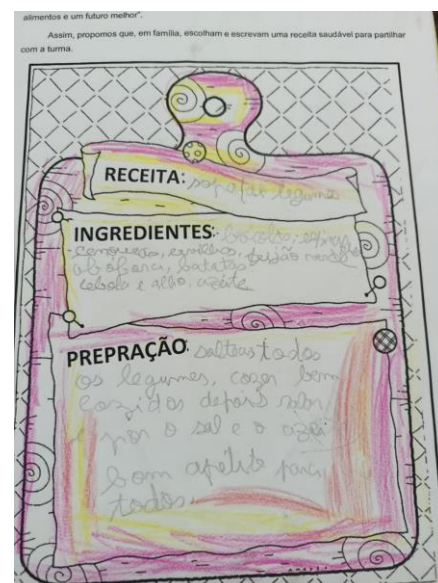 alimentos e um futuro melhor".
Assim, propomos que, em família, escolham e escrevam uma receita saudável para partilhar
com a turma.
RECEITA: sopa de legumes
INGREDIENTES:
cenouras, ervilhas, feijão
abóbora, batatas
cebola e alho, azeite
PREPRAÇÃO: saltear todos
os legumes, cozer bem
cozidos depois
e por o sal e o azei
bom apetite para
todos.